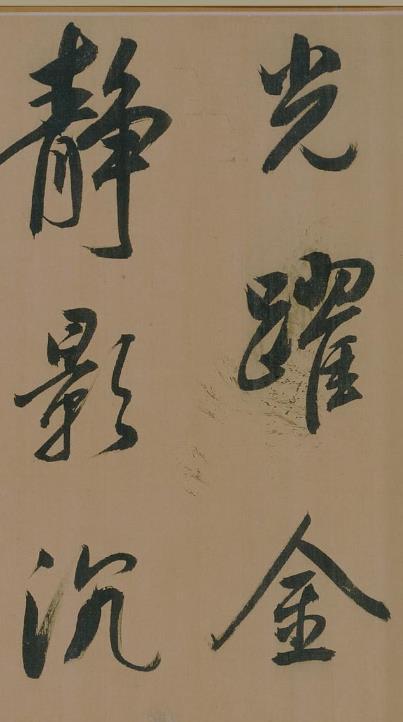 光躍金
静影沉